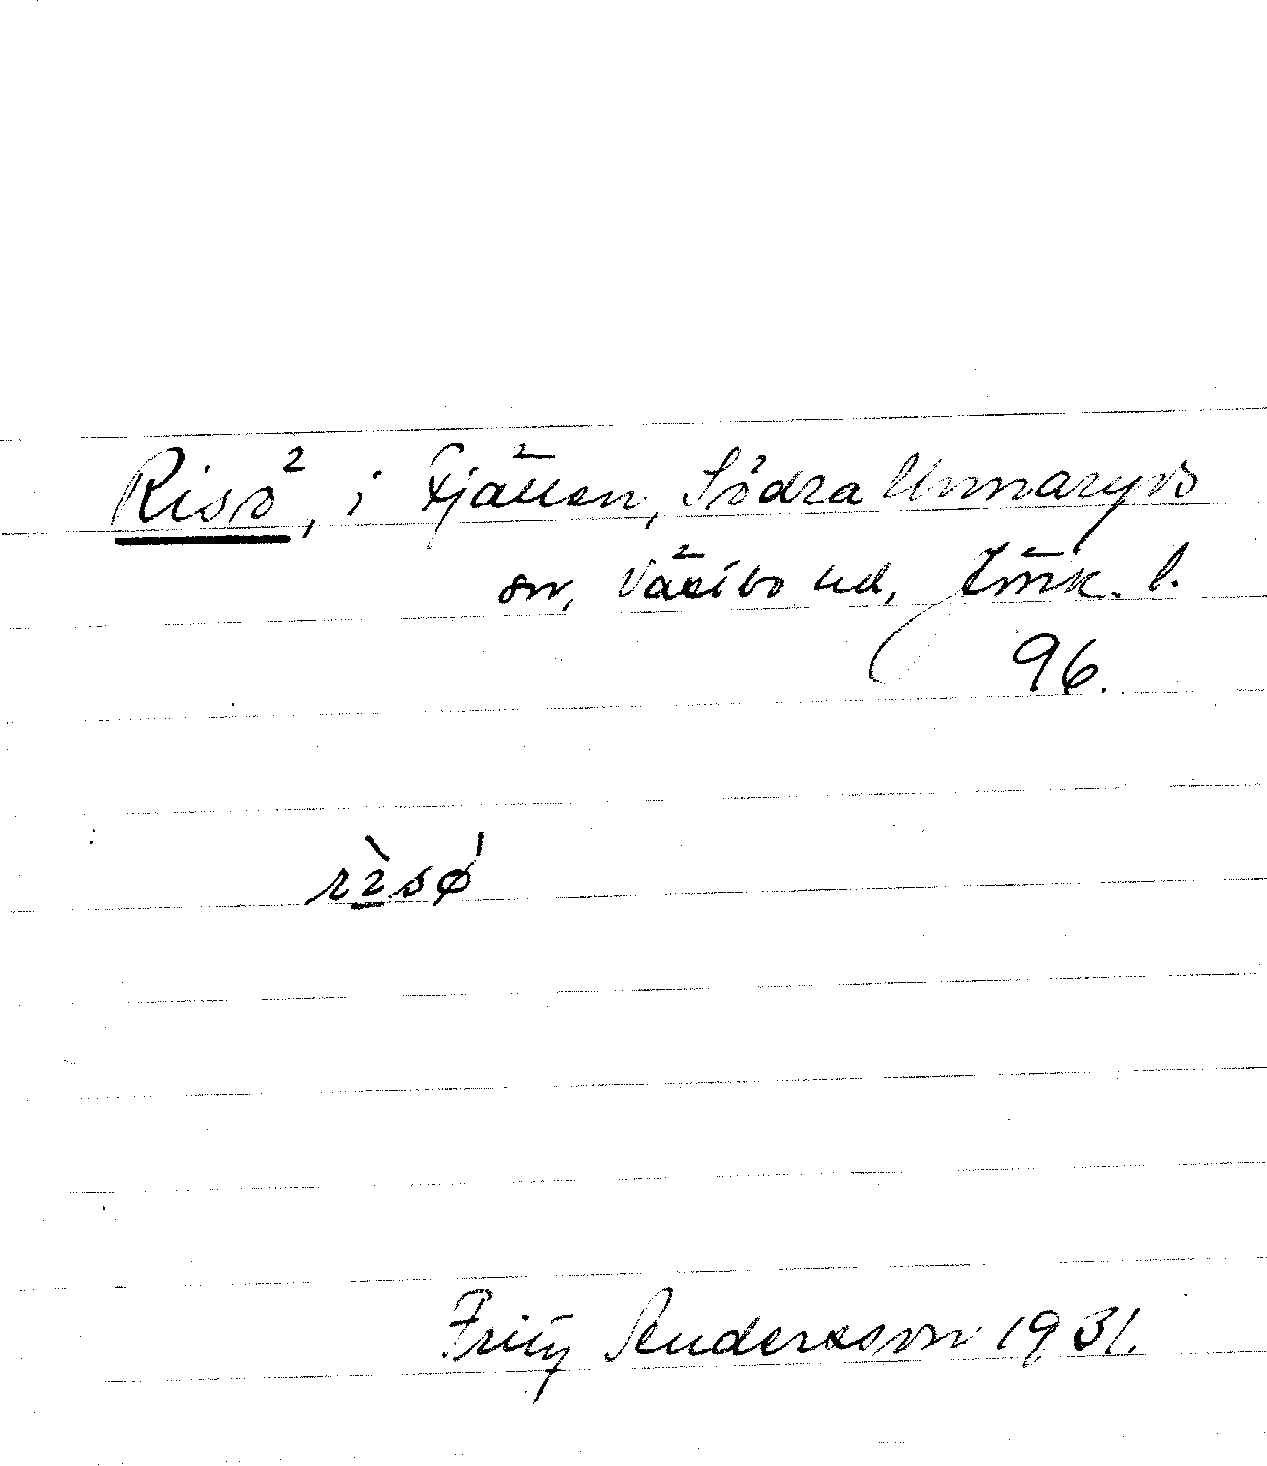 Risö, i Fjällen, Södra Unnaryds
sn, Västbo hd, Jönk. l.
96.
rìsø̍
Fritz Andersson 1931.